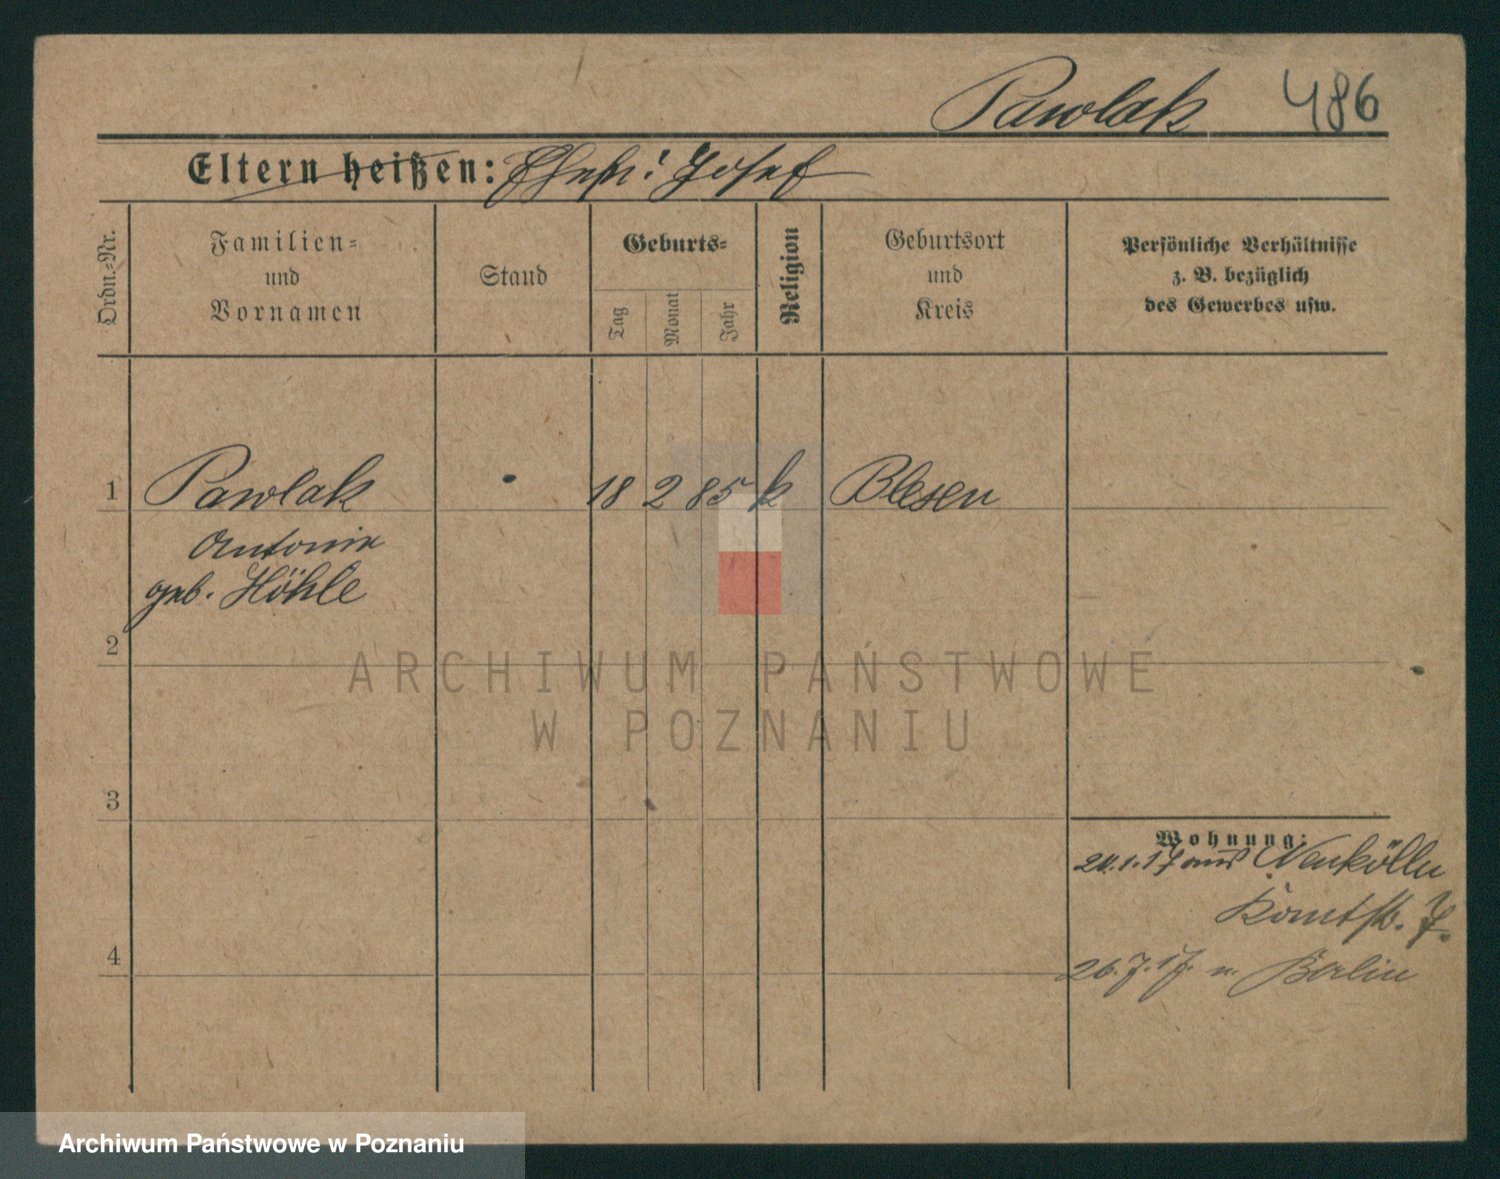 Pawlak 486
Eltern heißen: Ehefr: Josef
Ordn.-Nr.
Familien-
und
Vornamen
Stand
Geburts-
Tag
Monat
Jahr
Religion
Geburtsort
und
Kreis
Persönliche Verhältnisse
z. B. bezüglich
des Gewerbes usw.
1 Pawlak 18 2 85 k Blesen
Antonie
geb. Höhle
2
ARCHIWUM PAŃSTWOWE
W POZNANIU
3
Wohnung:
aus Neukölln
4
26.7.17. n. Berlin
Archiwum Państwowe w Poznaniu